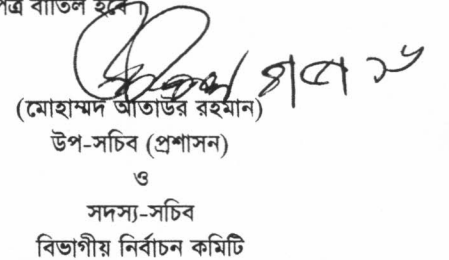 পত্র বাতিল হবে।
(মোহাম্মদ আতাউর রহমান)
উপ-সচিব (প্রশাসন)
ও
সদস্য-সচিব
বিভাগীয় নির্বাচন কমিটি